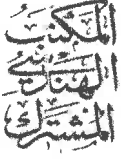 المكتب
الهندسي
المشترك